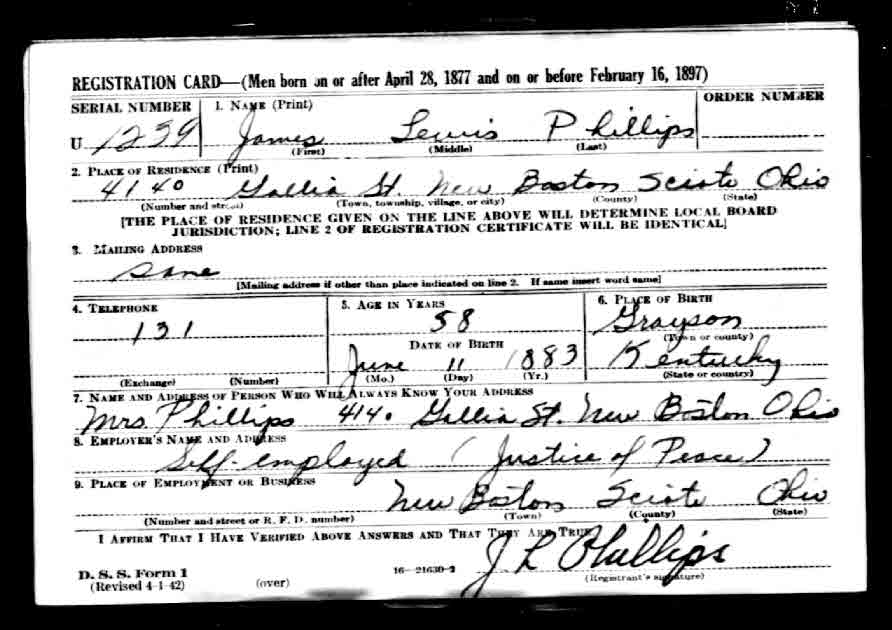 REGISTRATION CARD—(Men born on or after April 28, 1877 and on or before February 16, 1897)
SERIAL NUMBER 1. NAME (Print) ORDER NUMBER
U 1239 James Lewis Phillips
(First) (Middle) (Last)
2. PLACE OF RESIDENCE (Print)
4140 Gallia St. New Boston Scioto Ohio
(Number and street) (Town, township, village, or city) (County) (State)
[THE PLACE OF RESIDENCE GIVEN ON THE LINE ABOVE WILL DETERMINE LOCAL BOARD
JURISDICTION; LINE 2 OF REGISTRATION CERTIFICATE WILL BE IDENTICAL]
3. MAILING ADDRESS
Same
[Mailing address if other than place indicated on line 2. If same insert word same]
4. TELEPHONE 5. AGE IN YEARS 6. PLACE OF BIRTH
131 58 Grayson
(Town or county)
DATE OF BIRTH
June 11 1883 Kentucky
(Exchange) (Number) (Mo.) (Day) (Yr.) (State or country)
7. NAME AND ADDRESS OF PERSON WHO WILL ALWAYS KNOW YOUR ADDRESS
Mrs. Phillips 4140 Gallia St. New Boston Ohio
8. EMPLOYER'S NAME AND ADDRESS
Self-employed (Justice of Peace)
9. PLACE OF EMPLOYMENT OR BUSINESS
New Boston Scioto Ohio
(Number and street or R. F. D. number) (Town) (County) (State)
I AFFIRM THAT I HAVE VERIFIED ABOVE ANSWERS AND THAT THEY ARE TRUE.
J L Phillips
D. S. S. Form 1 16—21630-2 (Registrant's signature)
(Revised 4-1-42) (over)